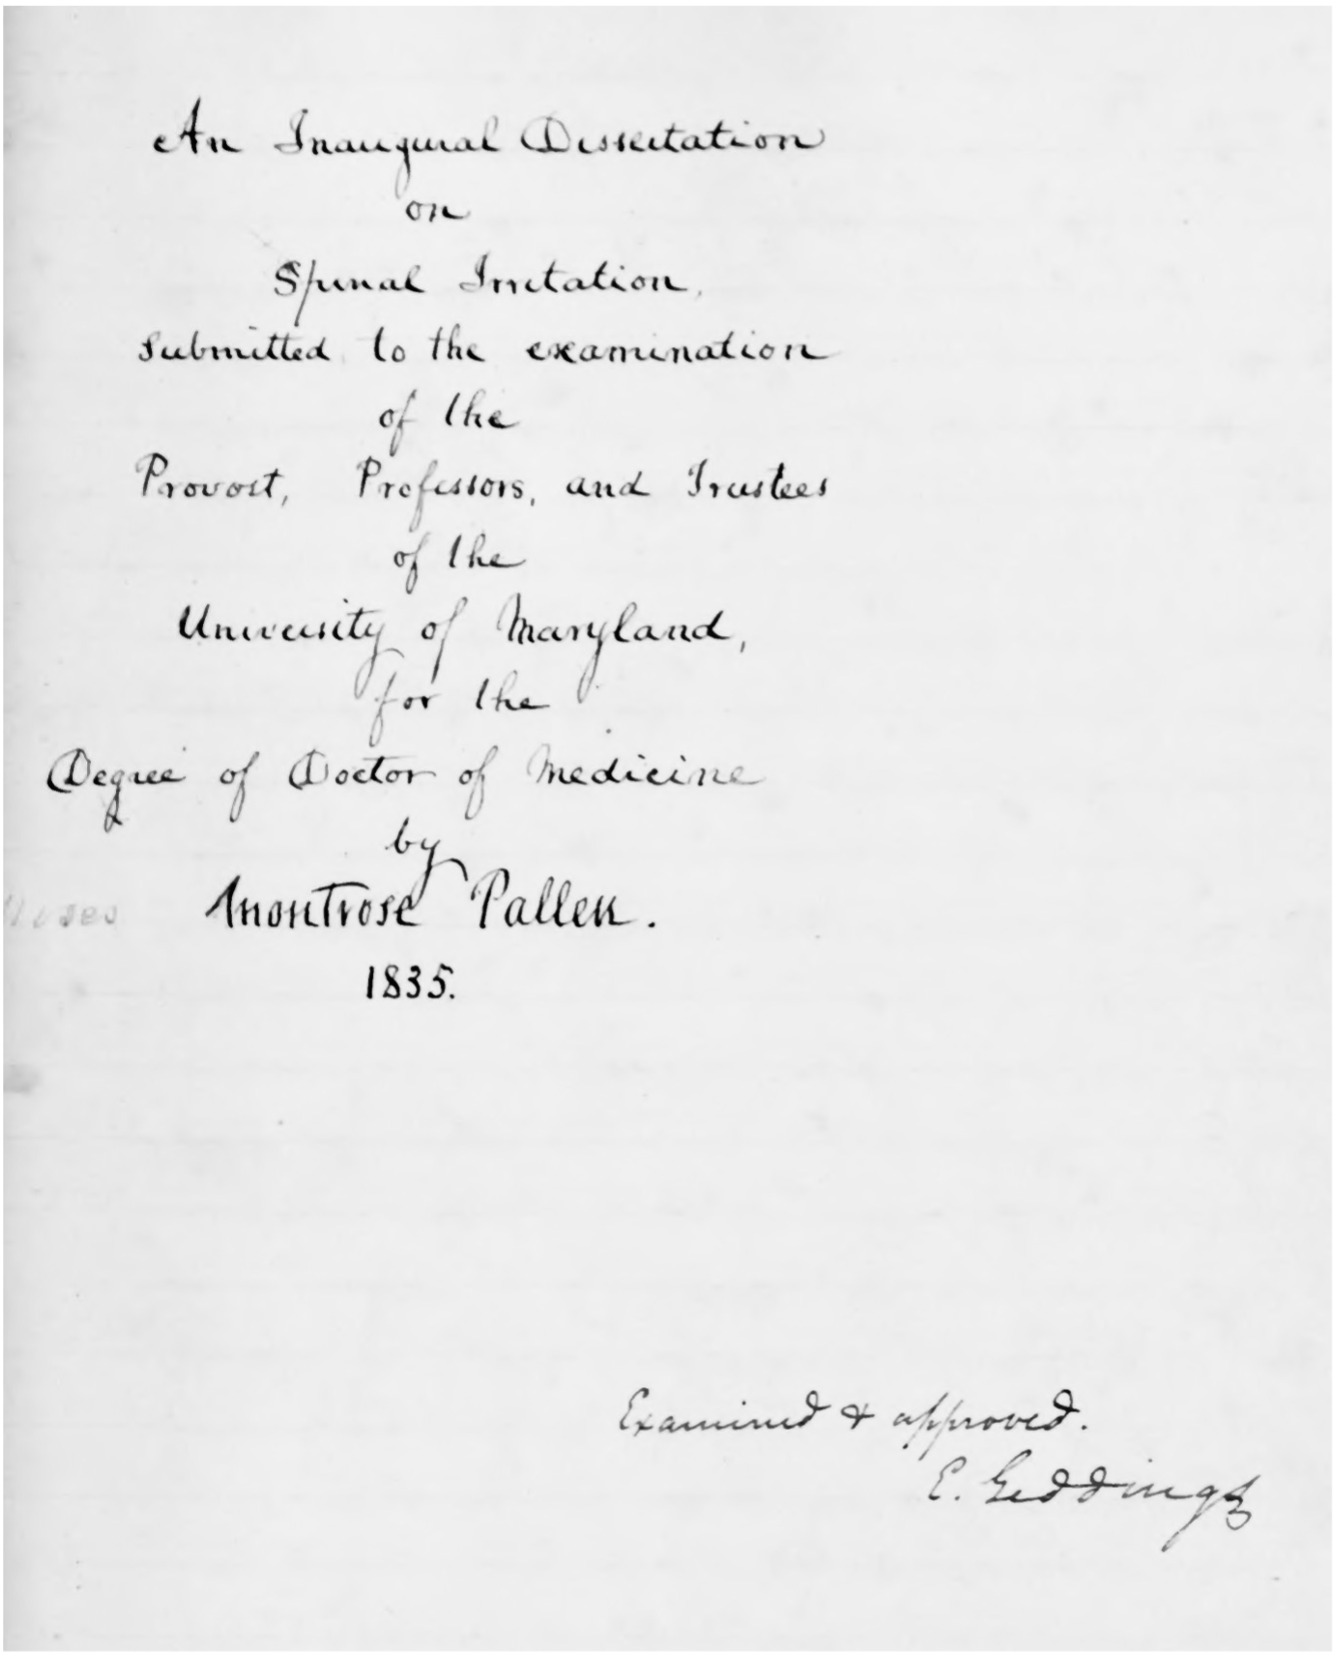 An Inaugural Dissertation
on
Spinal Irritation,
submitted to the examination
of the
Provost, Professors, and Trustees
of the
University of Maryland,
for the
Degree of Doctor of Medicine
by
Moses Montrose Pallen.
1835.
Examined & approved.
E. Geddings